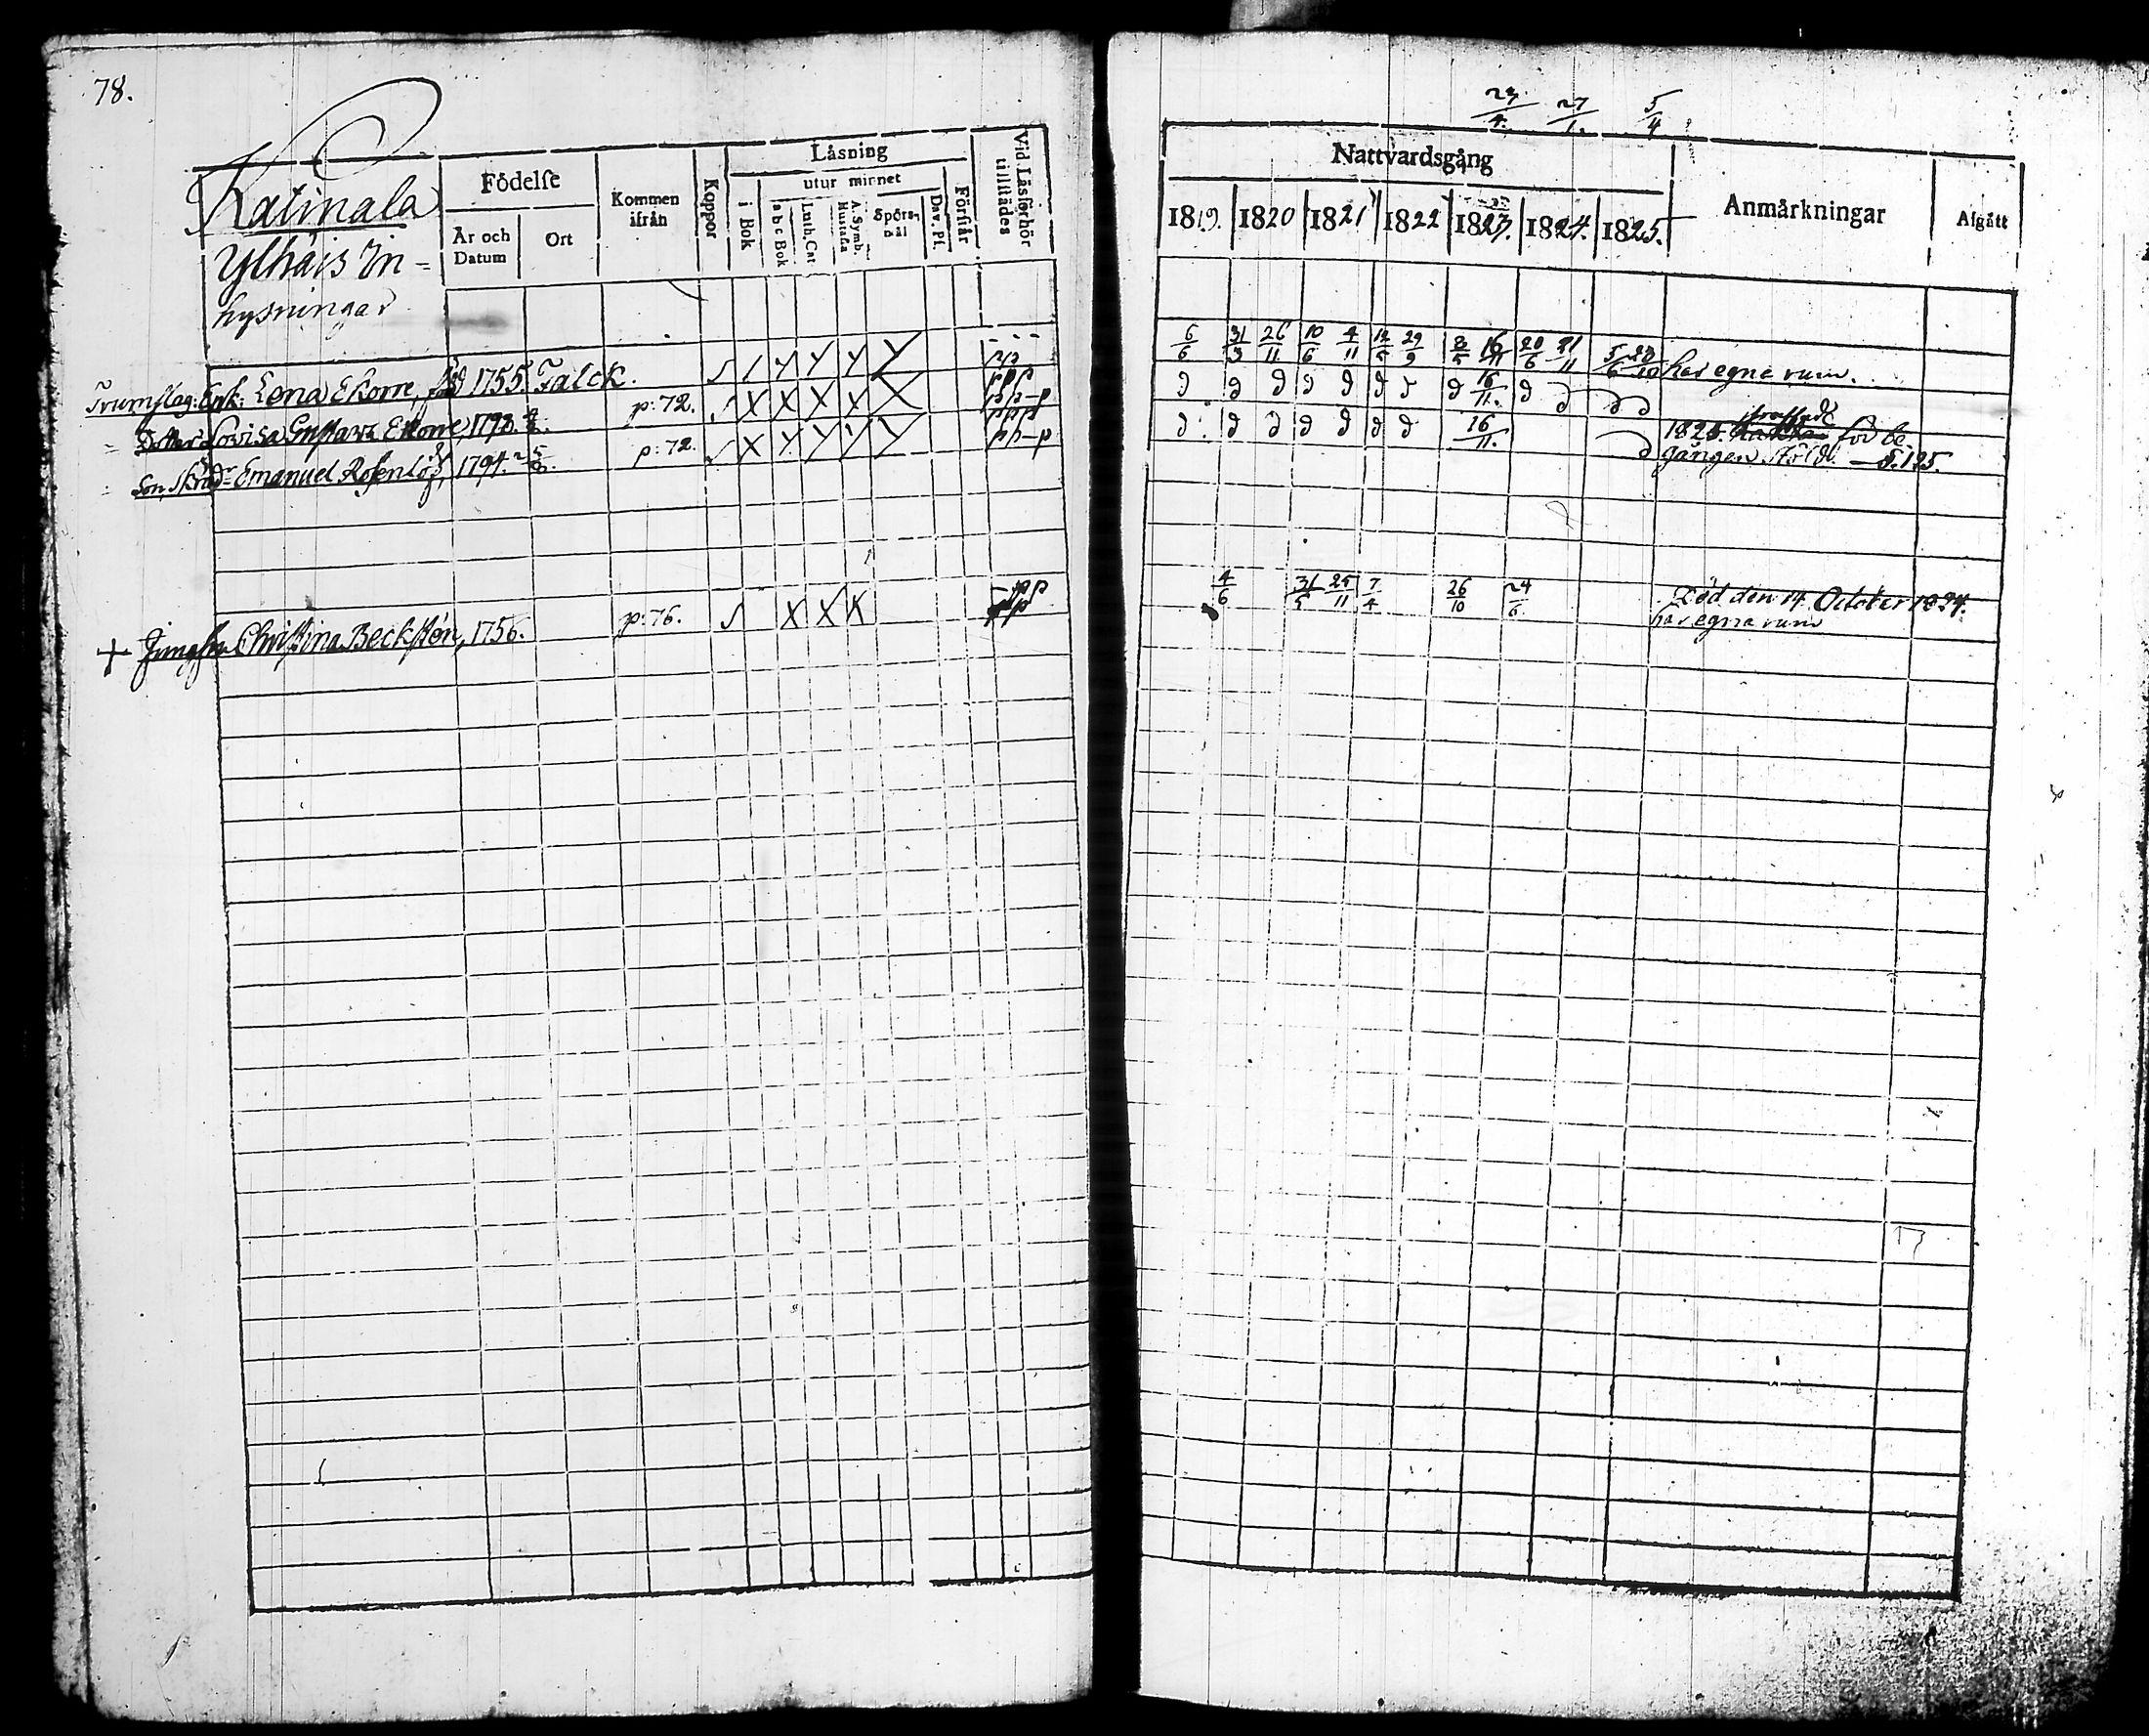 78.
Katinala
Ylhäis In=
hysningar
Födelse
År och Datum
Ort
Kommen ifrån
Koppor
Låsning
i Bok
utur minnet
a b c Bok
Luth. Cat
A. Symb. Hustafla
Spörsmål
Dav. Ps.
Förstår
Vid Låsförhör tillstådes
Trumslag: Enk: Lena Ekorre, född 1755. Falck.
Dotter Lovisa Gustava Ekorre, 1793. p: 72. X X X X X
Son, Skräd. Emanuel Rosenlöf, 1794. p: 72. X X
+ Jungfru Christina Beckstén, 1756. p: 76. X X X
27/4. 27/1. 5/4
Nattvardsgång
1819. 1820 1821 1822 1823. 1824. 1825.
Anmårkningar
Afgått
6/6 31/3 26/11 10/6 4/11 12/5 29/9 8/5 16/11 20/6 21/11 5/6 har egna rum.
16/11.
straffad
16/11. 1825. för be-
gången stöld. S. 125.
4/6 31/5 25/11 7/4 26/10 24/6 Död den 14 October 1824.
har egna rum